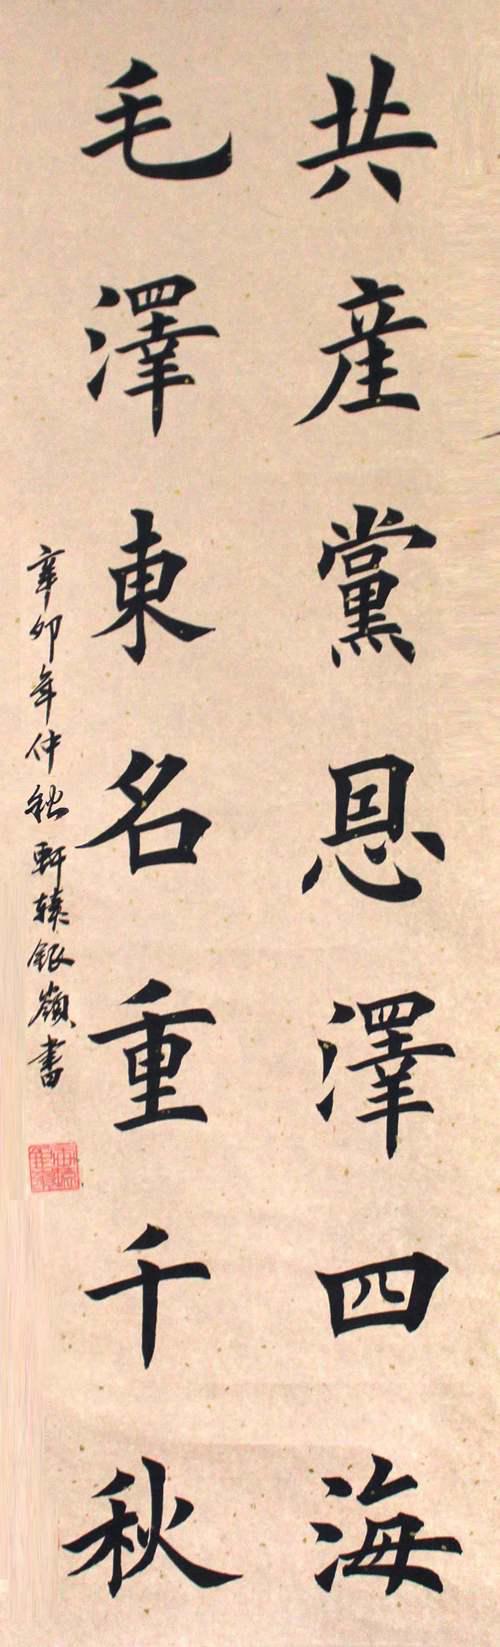 共產黨恩澤四海
毛澤東名重千秋
辛卯年仲秋軒轅銀嶺書